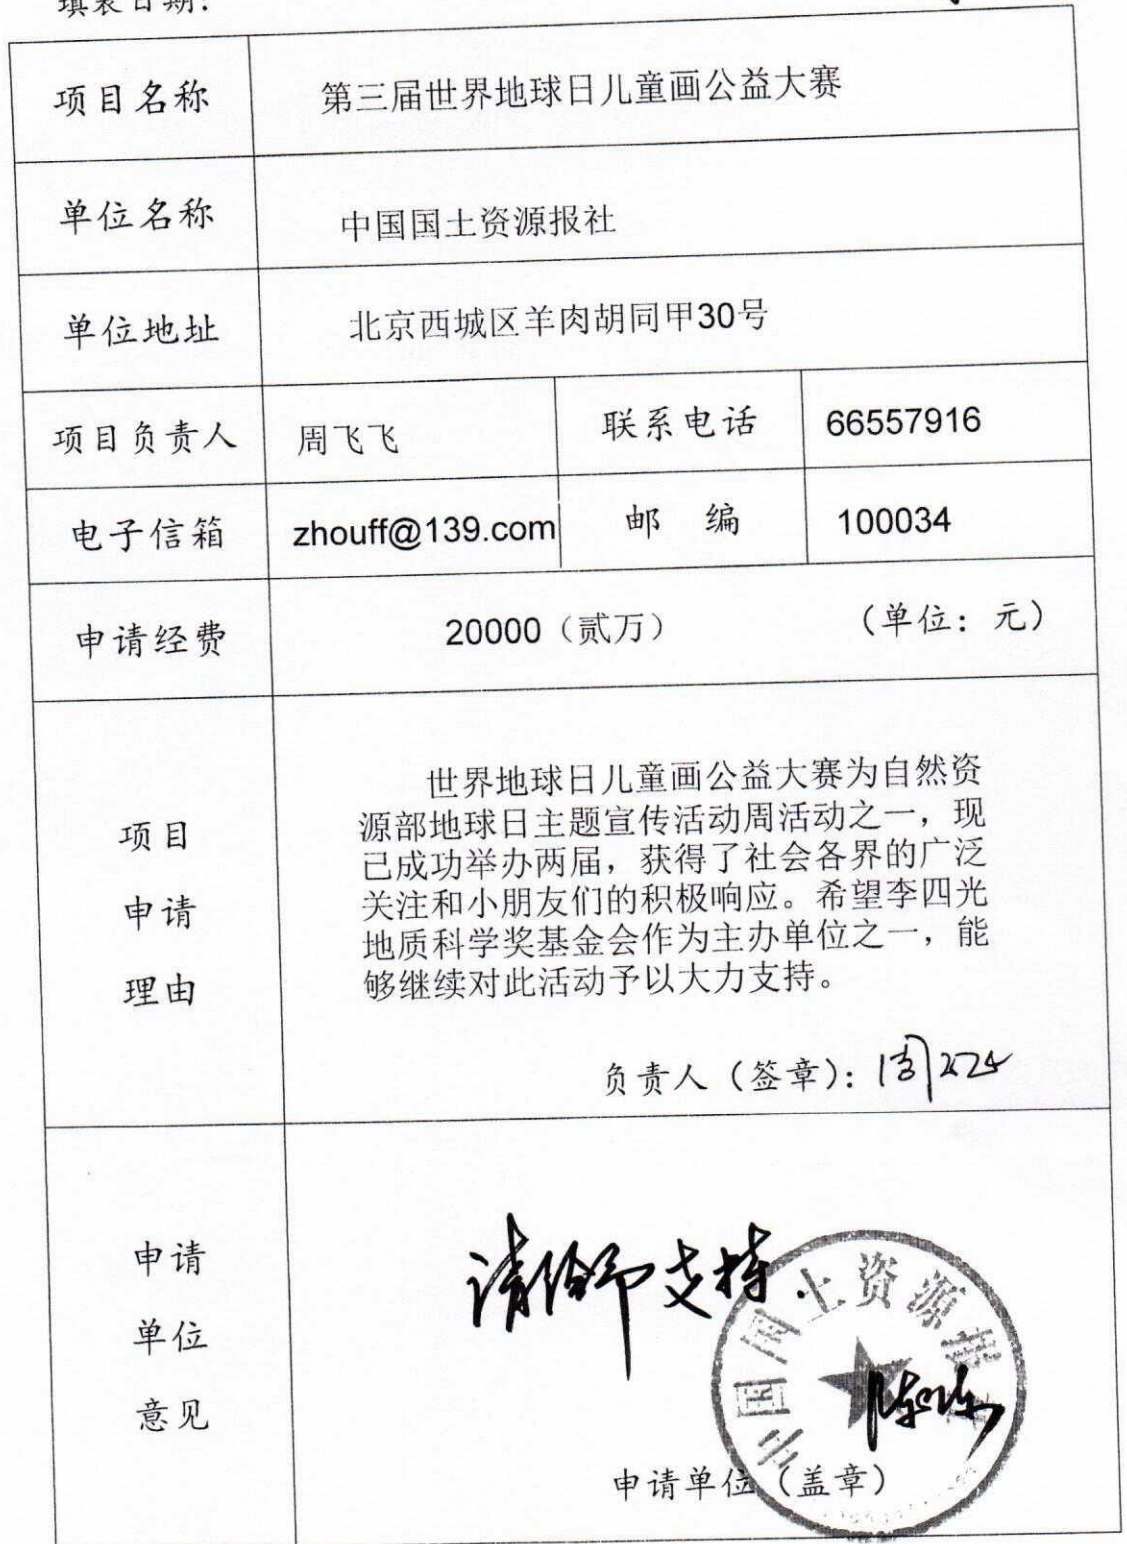 填表日期:
项目名称 第三届世界地球日儿童画公益大赛
单位名称 中国国土资源报社
单位地址 北京西城区羊肉胡同甲30号
项目负责人 周飞飞 联系电话 66557916
电子信箱 zhouff@139.com 邮 编 100034
申请经费 20000（贰万） （单位：元）
项目
申请
理由
世界地球日儿童画公益大赛为自然资
源部地球日主题宣传活动周活动之一，现
已成功举办两届，获得了社会各界的广泛
关注和小朋友们的积极响应。希望李四光
地质科学奖基金会作为主办单位之一，能
够继续对此活动予以大力支持。
负责人（签章）：周飞飞
申请
单位
意见
请给予支持.
中国国土资源报社
申请单位（盖章）